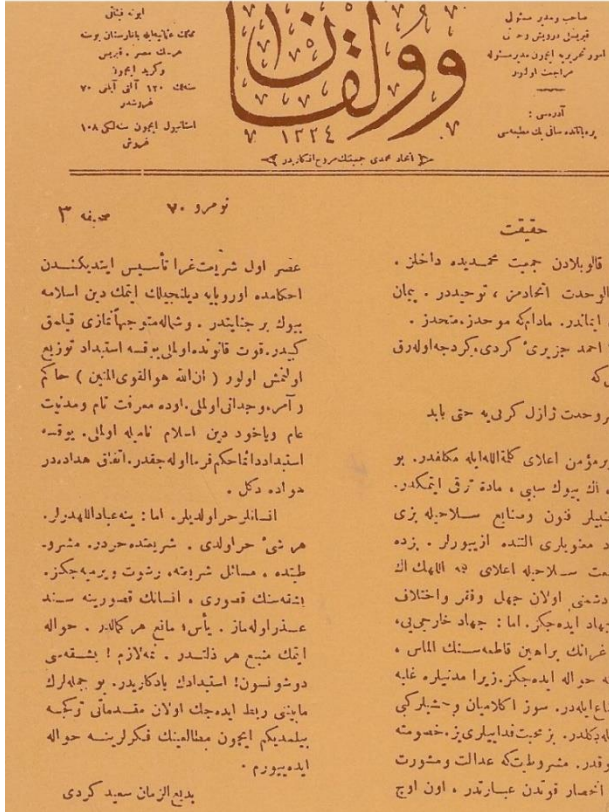 صاحب و مدير مسئول
قبريسلى درويش وحدتى
امور تحريريه ايچون مدير مسئوله
مراجعت اولنور
آدرسى :
وولقان
١٣٢٤
اتحاد محمدى جمعيتنك مروج افكاريدر
ابونه فيئاتى
ممالك عثمانيه ايله بلغارستان بوسنه
هرسك مصر . قبريس
وكريد ايچون
سنه لك ١٢٠ آلتى آيلغى ٧٠
غروشدر
استانبول ايچون سنه لكى ١٠٨
غروش
نومرو ٧٠
صحيفه ٣
حقيقت
قالوبلادن جمعيت محمديده داخلز .
الوحدت اتحادمز ، توحيددر . يمان
ايماندر . مادامكه موحدز ، متحدز .
احمد جزيرىء كردى ، كردجه اوله رق
كه
وحدت ژازل كرتيه حتى بابد
برمؤمن اعلاى كلمة الله ايله مكلفدر . بو
اك بيوك سببى ، مادة ترقى ايتمكدر .
فنون وصنايع سلاحيله بزى
معنويلرى التنده ازييورلر . بزده
سلاحيله اعلاى كلمة اللهك اك
دشمنى اولان جهل وفقر واختلاف
جهاد ايده جكز . اما : جهاد خارجى يى ،
غرانك براهين قاطعه سنك الماس ،
حواله ايده جكز . زيرا مدنيلره غلبه
اقناع ايله در . سوز اكلاميان وحشيلر كبى
دكلدر . بز محبت فداييلرى يز . خصومته
يوقدر . مشروطيت كه عدالت ومشورت
انحصار قوتدن عبارتدر ، اون اوچ
عصر اول شريعت غرا تأسيس ايتديكندن
احكامده اوروپايه ديلنجيلك ايتمك دين اسلامه
بيوك بر جنايتدر . وشماله متوجهاً نمازى قيلمق
كبيدر . قوت قانونده اولمالى يوقسه استبداد توزيع
اولنمش اولور ( ان الله هو القوى المتين ) حاكم
وآمر ، وجدانى اولمالى . اوده معرفت تام ومدنيات
عام وياخود دين اسلام ناميله اولمالى . يوقسه
استبداد دائما حكمفرما اوله جقدر . اتفاق هداده در
هواده دكل .
انسانلر حر اولديلر . اما : ينه عبداللهدرلر .
هر شىء حر اولدى . شريعتده حردر . مشرو-
طيتده . مسائل شريعته ، رشوت ويرميه جكز .
بشقه سنك قصورى ، انسانك قصورينه سند
عذر اوله ماز . يأس ؛ مانع هر كمالدر . حواله
ايتمك منبع هر ذلتدر . نمه لازم ! بشقه سى
دوشونسون ! استبدادك يادكاريدر . بو جمله لرك
مابينى ربط ايده جك اولان مقدماتى تركجه
بيلمديكم ايچون مطالعينك فكرلرينه حواله
ايدييورم .
بديع الزمان سعيد كردى